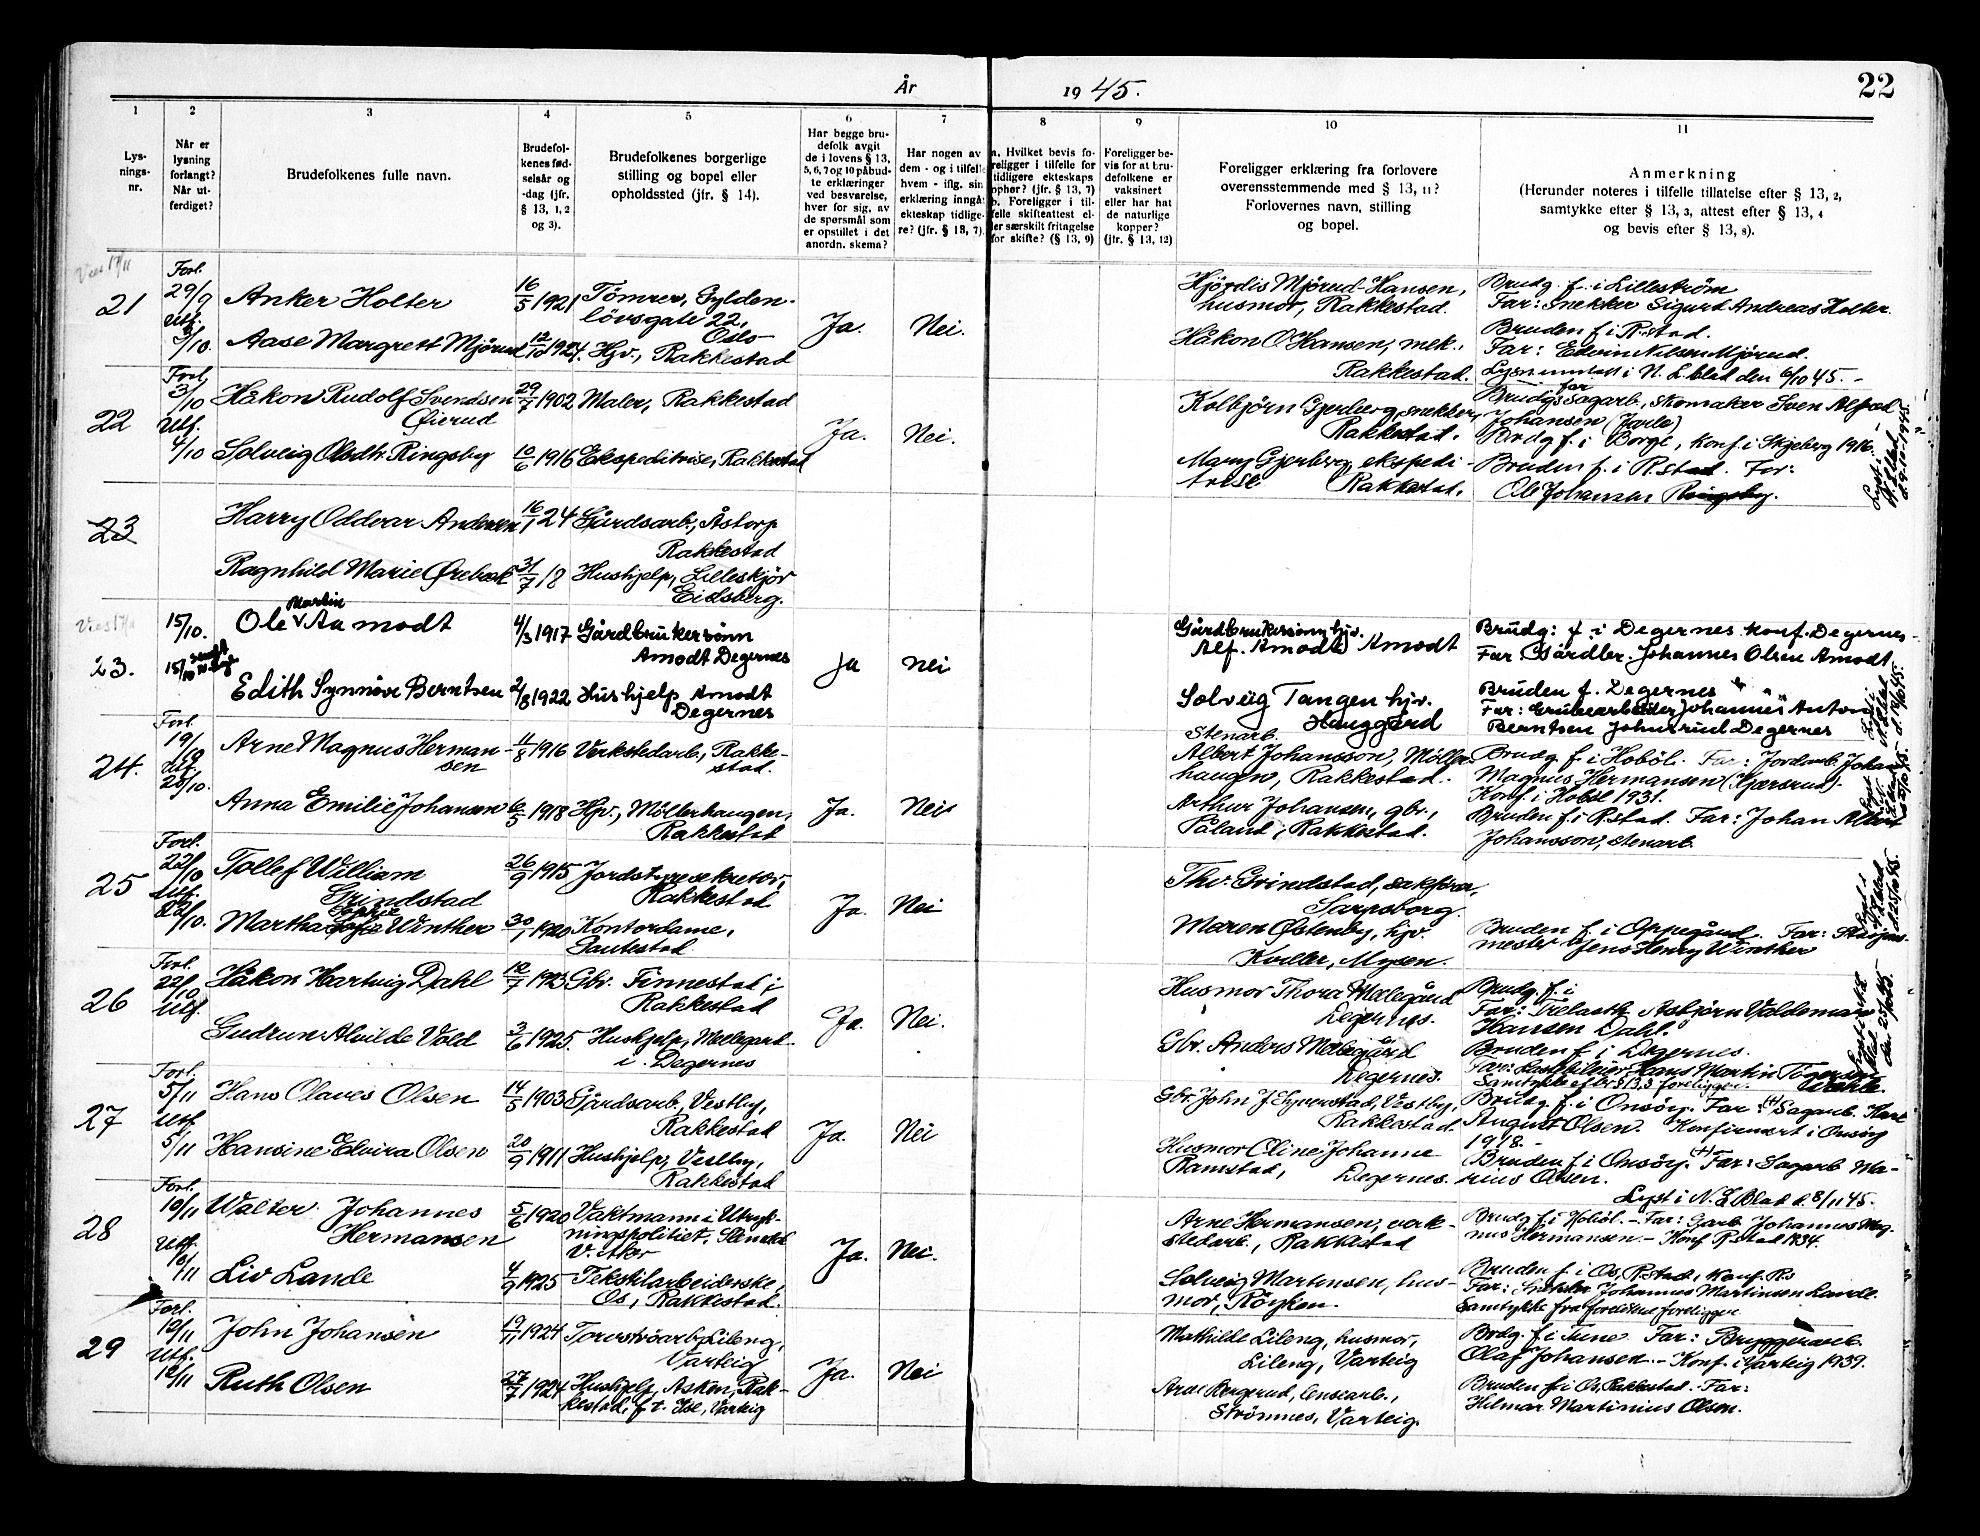 År 1945.
22
1
2
3
4
5
6
7
8
9
10
11
Lys-
nings-
nr.
Når er
lysning
forlangt?
Når ut-
ferdiget?
Brudefolkenes fulle navn.
Brudefol-
kenes fød-
selsår og
-dag (jfr.
§ 13, 1, 2
og 3).
Brudefolkenes borgerlige
stilling og bopel eller
opholdssted (jfr. § 14).
Har begge bru-
defolk avgit
de i lovens § 13,
5, 6, 7 og 10 påbud-
te erklæringer
ved besvarelse,
hver for sig, av
de spørsmål som
er opstillet i det
anordn. skema?
Har nogen av
dem - og i tilfelle
hvem - iflg. sin
erklæring inngått
ekteskap tidlige-
re? (jfr. § 13, 7).
a. Hvilket bevis fo-
religger i tilfelle for
tidligere ekteskaps
ophør? (jfr. § 13, 7)
b. Foreligger i til-
felle skifteattest el-
ler særskilt fritagelse
for skifte? (§ 13, 9)
Foreligger be-
vis for at bru-
defolkene er
vaksinert
eller har hat
de naturlige
kopper?
(jfr. § 13, 12)
Foreligger erklæring fra forlovere
overensstemmende med § 13, 11?
Forlovernes navn, stilling
og bopel.
Anmerkning
(Herunder noteres i tilfelle tillatelse efter § 13, 2,
samtykke efter § 13, 3, attest efter § 13, 4
og bevis efter § 13, 8).
21
Forl.
29/9
Utf.
3/10.
Anker Holter
16/5 1921
Tømrer, Gylden-
løvsgate 22,
Oslo
Aase Margrett Mjørud
12/10 1924.
Hjv., Rakkestad
Ja.
Nei.
Hjørdis Mjørud-Hansen,
husmor, Rakkestad.
Håkon O Hansen, mek.,
Rakkestad.
Brudg. f. i Lilleström
Far: Snekker Sigurd Andreas Holter.
Bruden f. i R.stad.
Far: Edvin Nilsen Mjørud.
Lysn innsatt i N. L. blad den 6/10 45. -
22
Forl.
3/10
Utf.
4/10
Håkon Rudolf Svendsen
Øierud
29/7 1902
Maler, Rakkestad
Solveig Olsdtr. Ringsby
10/6 1916
Ekspeditrise, Rakkestad
Ja.
Nei.
Kolbjørn Gjerberg, snekker,
Rakkestad.
Mary Gjerberg, ekspedi-
trise Rakkestad.
Brudgs far sagarb., skomaker Sven Alfred
Johansen
Brdg f. i Borge, konf. i Skjeberg 1916.
Bruden f. i R.stad. Far:
Ole Johansen Ringsby.
23
Harry Oddvar Andersen
16/1 24
Gårdsarb., Åstorp
Rakkestad
Ragnhild Marie Ørebæk
31/7 18
Hushjelp, Lilleskjør
Eidsberg.
23.
15/10.
Ole Martin Aamodt
4/3 1917
Gårdbrukersønn
Amodt Degernes
Edith Synnøve Berntsen
2/8 1922
Hushjelp Amodt
Degernes
Ja
Nei
Gårdbrukersønn hjv.
Alf. Amodt Amodt
Solveig Tangen hjv.
Hauggård
Brudg: f. i Degernes konf. Degernes
Far: Gårdbr. Johannes Olsen Amodt
Bruden f. Degernes
Far: Grubearbeider Johannes Anton
Berntsen Johnsrud Degernes
24.
Forl.
19/10
Utf.
25/10.
Arne Magnus Herman-
sen
11/8 1916
Verkstedarb., Rakke-
stad.
Anna Emilie Johansen
6/5 1918
Hjv., Möllerhaugen,
Rakkestad
Ja.
Nei
Stenarb.
Albert Johansson, Möller-
haugen, Rakkestad.
Arthur Johansen, gbr.,
Påland, Rakkestad.
Brudg f. i Hobøl. Far: Jordarb. Johan
Magnus Hermansen (Kjærsrud).
Konf. i Hobøl 1931.
Bruden f. i R.stad. Far: Johan Albert
Johansson, stenarb.
25
Forl.
22/10
Utf.
22/10.
Tollef William
Grindstad
26/9 1915
Jordstyresekretær,
Rakkestad
Martha Sophie Winther
30/1 1920
Kontordame,
Sautestad
Ja.
Nei
Thv. Grindstad, sakfører,
Sarpsborg.
Maren Østenby, hjv.
Koller, Mysen.
Bruden f. i Oppegård. Far: Stasjons-
mester Jens Henry Winther
26
Forl.
22/10
Utf.
Håkon Hartvig Dahl
12/7 1923
Gbr. Finnestad i
Rakkestad
Gudrun Alvilde Vold
3/6 1925.
Hushjelp, Mellegård
i Degernes
Ja.
Nei.
Husmor Thora Mellegård
Degernes.
Gbr. Anders Mellegård
Degernes.
Brudg. f. i
Far: Trelasth. Asbjørn Valdemar
Hansen Dahl.
Bruden f. i Degernes.
Far: Lastebileier Hans Martin Torgersen
Samtykke efter § 13,3 foreligger.
27
Forl.
5/11
Utf.
5/11
Hans Olaves Olsen
14/5 1903
Gårdsarb., Vestby,
Rakkestad
Hansine Elvira Olsen
20/9 1911
Hushjelp, Vestby,
Rakkestad
Ja.
Nei
Gbr. John J Syverstad, Vestby,
Rakkestad.
Husmor Oline Johanne
Ramstad, Degernes.
Brudg. f. i Onsøy. Far: (+) Sagarb. Karl
August Olsen. Konfirmert i Onsøy
1918.-
Bruden f. i Onsøy. (+) Far: Sagarb Ma-
rius Olsen.
Lyst i N. L Blad d. 8/11 45.
28
Forl.
10/11
Utf.
10/11
Walter Johannes
Hermansen
5/6 1920
Vaktmann i Utryk-
ningspolitiet.
Liv Lande
4/9 1925
Tekstilarbeiderske,
Os, Rakkestad.
Ja.
Nei.
Arne Hermansen, verk-
stedarb., Rakkestad
Solveig Martinsen, hus-
mor, Röyken.
Brudg f. i Hobøl. - Far: Garb Johannes Mag-
nus Hermansen. - Konf R.stad 1934.
Bruden f. i Os, R.stad, Konf. R.s
Far: Snekker Johannes Martinsen Lande.
Samtykke fra foreldrene foreligger
29
Forl.
12/11
Utf.
12/11
John Johansen
19/11 1924
Torvströarb. Lileng,
Varteig
Ruth Olsen
27/7 1924
Hushjelp, Asken, Rak-
kestad, f.t. Ise, Varteig
Ja.
Nei
Mathilde Lileng, husmor,
Lileng, Varteig
Arne Bergerud, lensearb.,
Strömnes, Varteig.
Brdg. f. i Tune Far: Bryggeriarb.
Olaf Johansen. - Konf. i Varteig 1939.
Bruden f. i Os, Rakkestad. Far:
Hilmar Martinius Olsen.